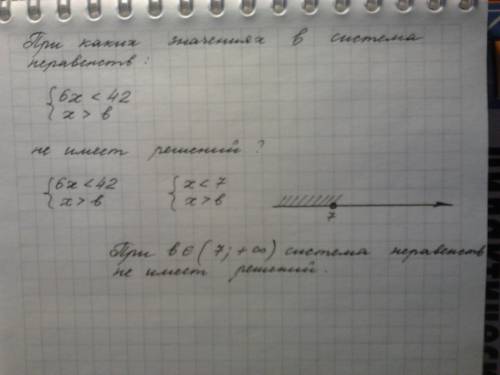 При каких значениях в система
неравенств:
{6x < 42
x > в
не имеет решений?
{6x < 42
x > в
{x < 7
x > в
7
При в ∈ (7; +∞) система неравенств
не имеет решений.